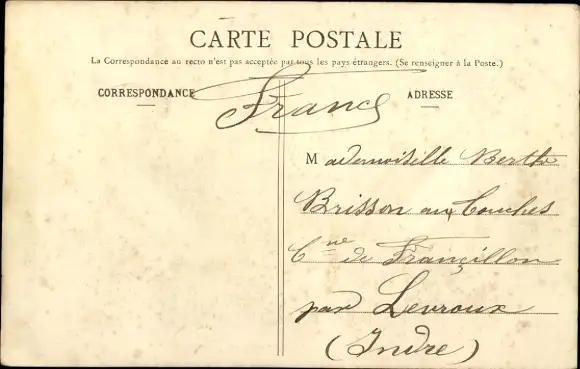 CARTE POSTALE
La Correspondance au recto n'est pas acceptée par tous les pays étrangers. (Se renseigner à la Poste.)
CORRESPONDANCE
France
ADRESSE
Mademoiselle Berthe
Brisson aux Couches
Cne de Françillon
par Levroux
(Indre)